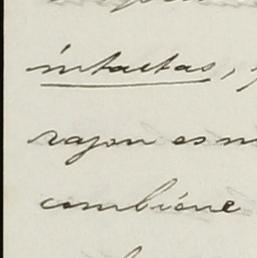 intactas,
rason es m
combiéne